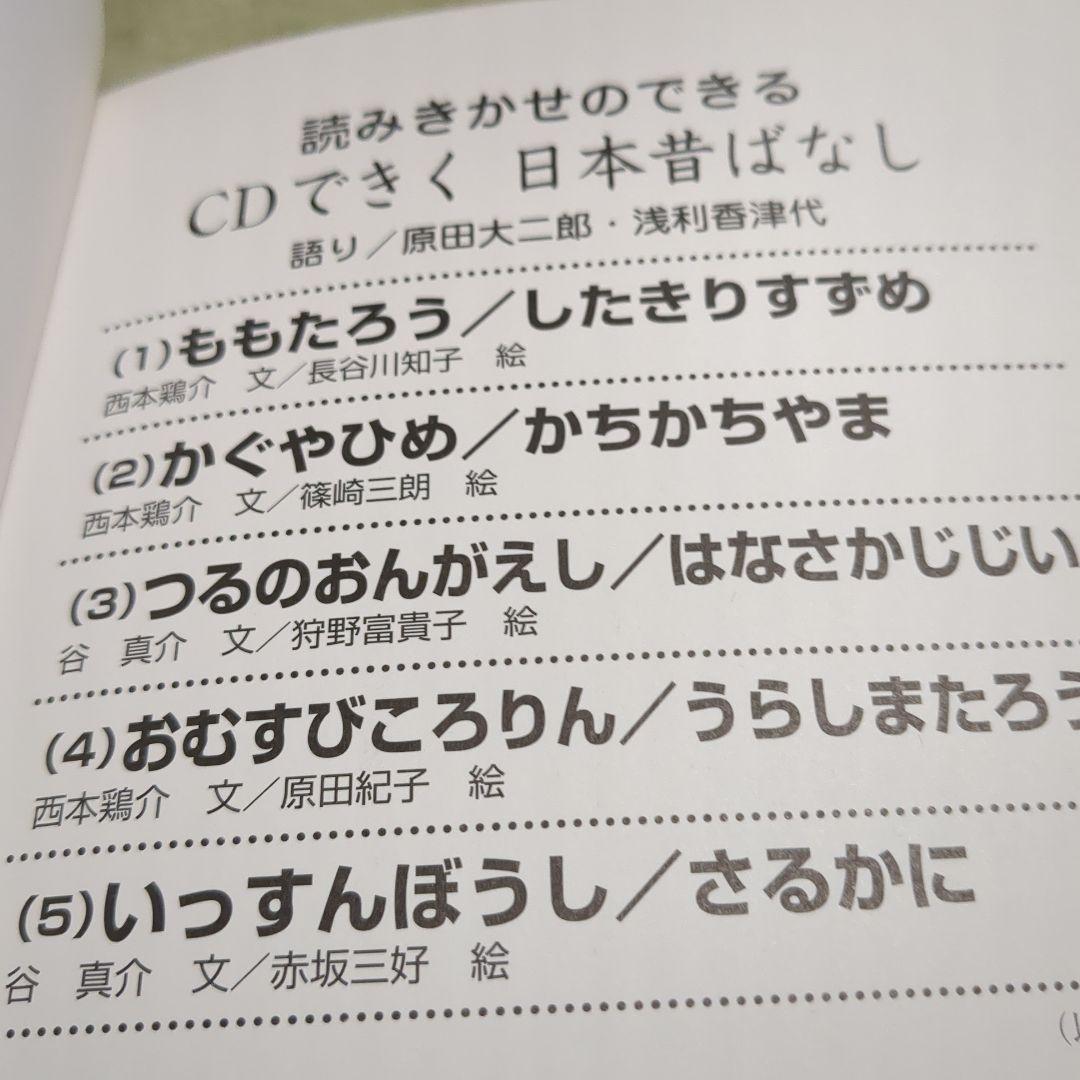 読みきかせのできる
CDできく 日本昔ばなし
語り／原田大二郎・浅利香津代
(1)ももたろう／したきりすずめ
西本鶏介　文／長谷川知子　絵
(2)かぐやひめ／かちかちやま
西本鶏介　文／篠崎三朗　絵
(3)つるのおんがえし／はなさかじじい
谷　真介　文／狩野富貴子　絵
(4)おむすびころりん／うらしまたろう
西本鶏介　文／原田紀子　絵
(5)いっすんぼうし／さるかに
谷　真介　文／赤坂三好　絵